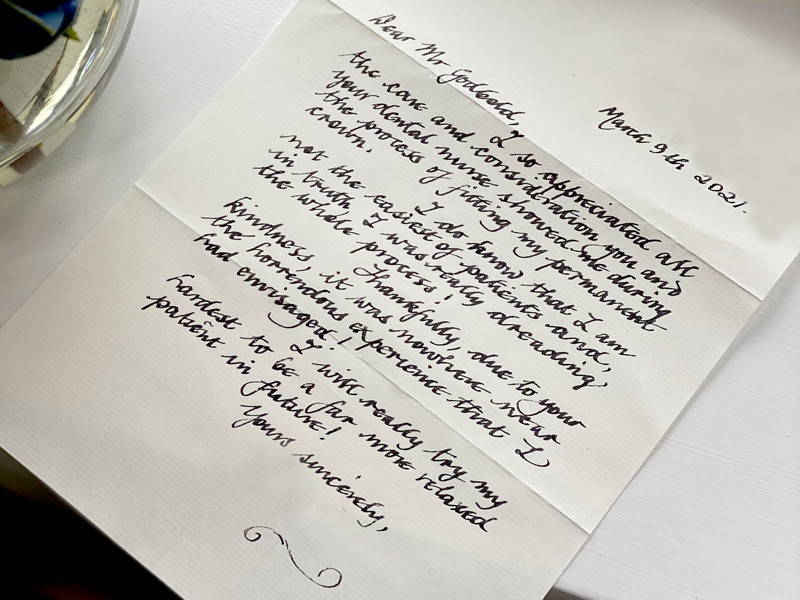 March 9th 2021.
Dear Mr Godbold,
I so appreciated all
the care and consideration you and
your dental nurse showed me during
the process of fitting my permanent
crown.
I do know that I am
not the easiest of patients and,
in truth I was really dreading
the whole process!
Thankfully, due to your
kindness, it was nowhere near
the horrendous experience that I
had envisaged!
I will really try my
hardest to be a far more relaxed
patient in future!
Yours sincerely,